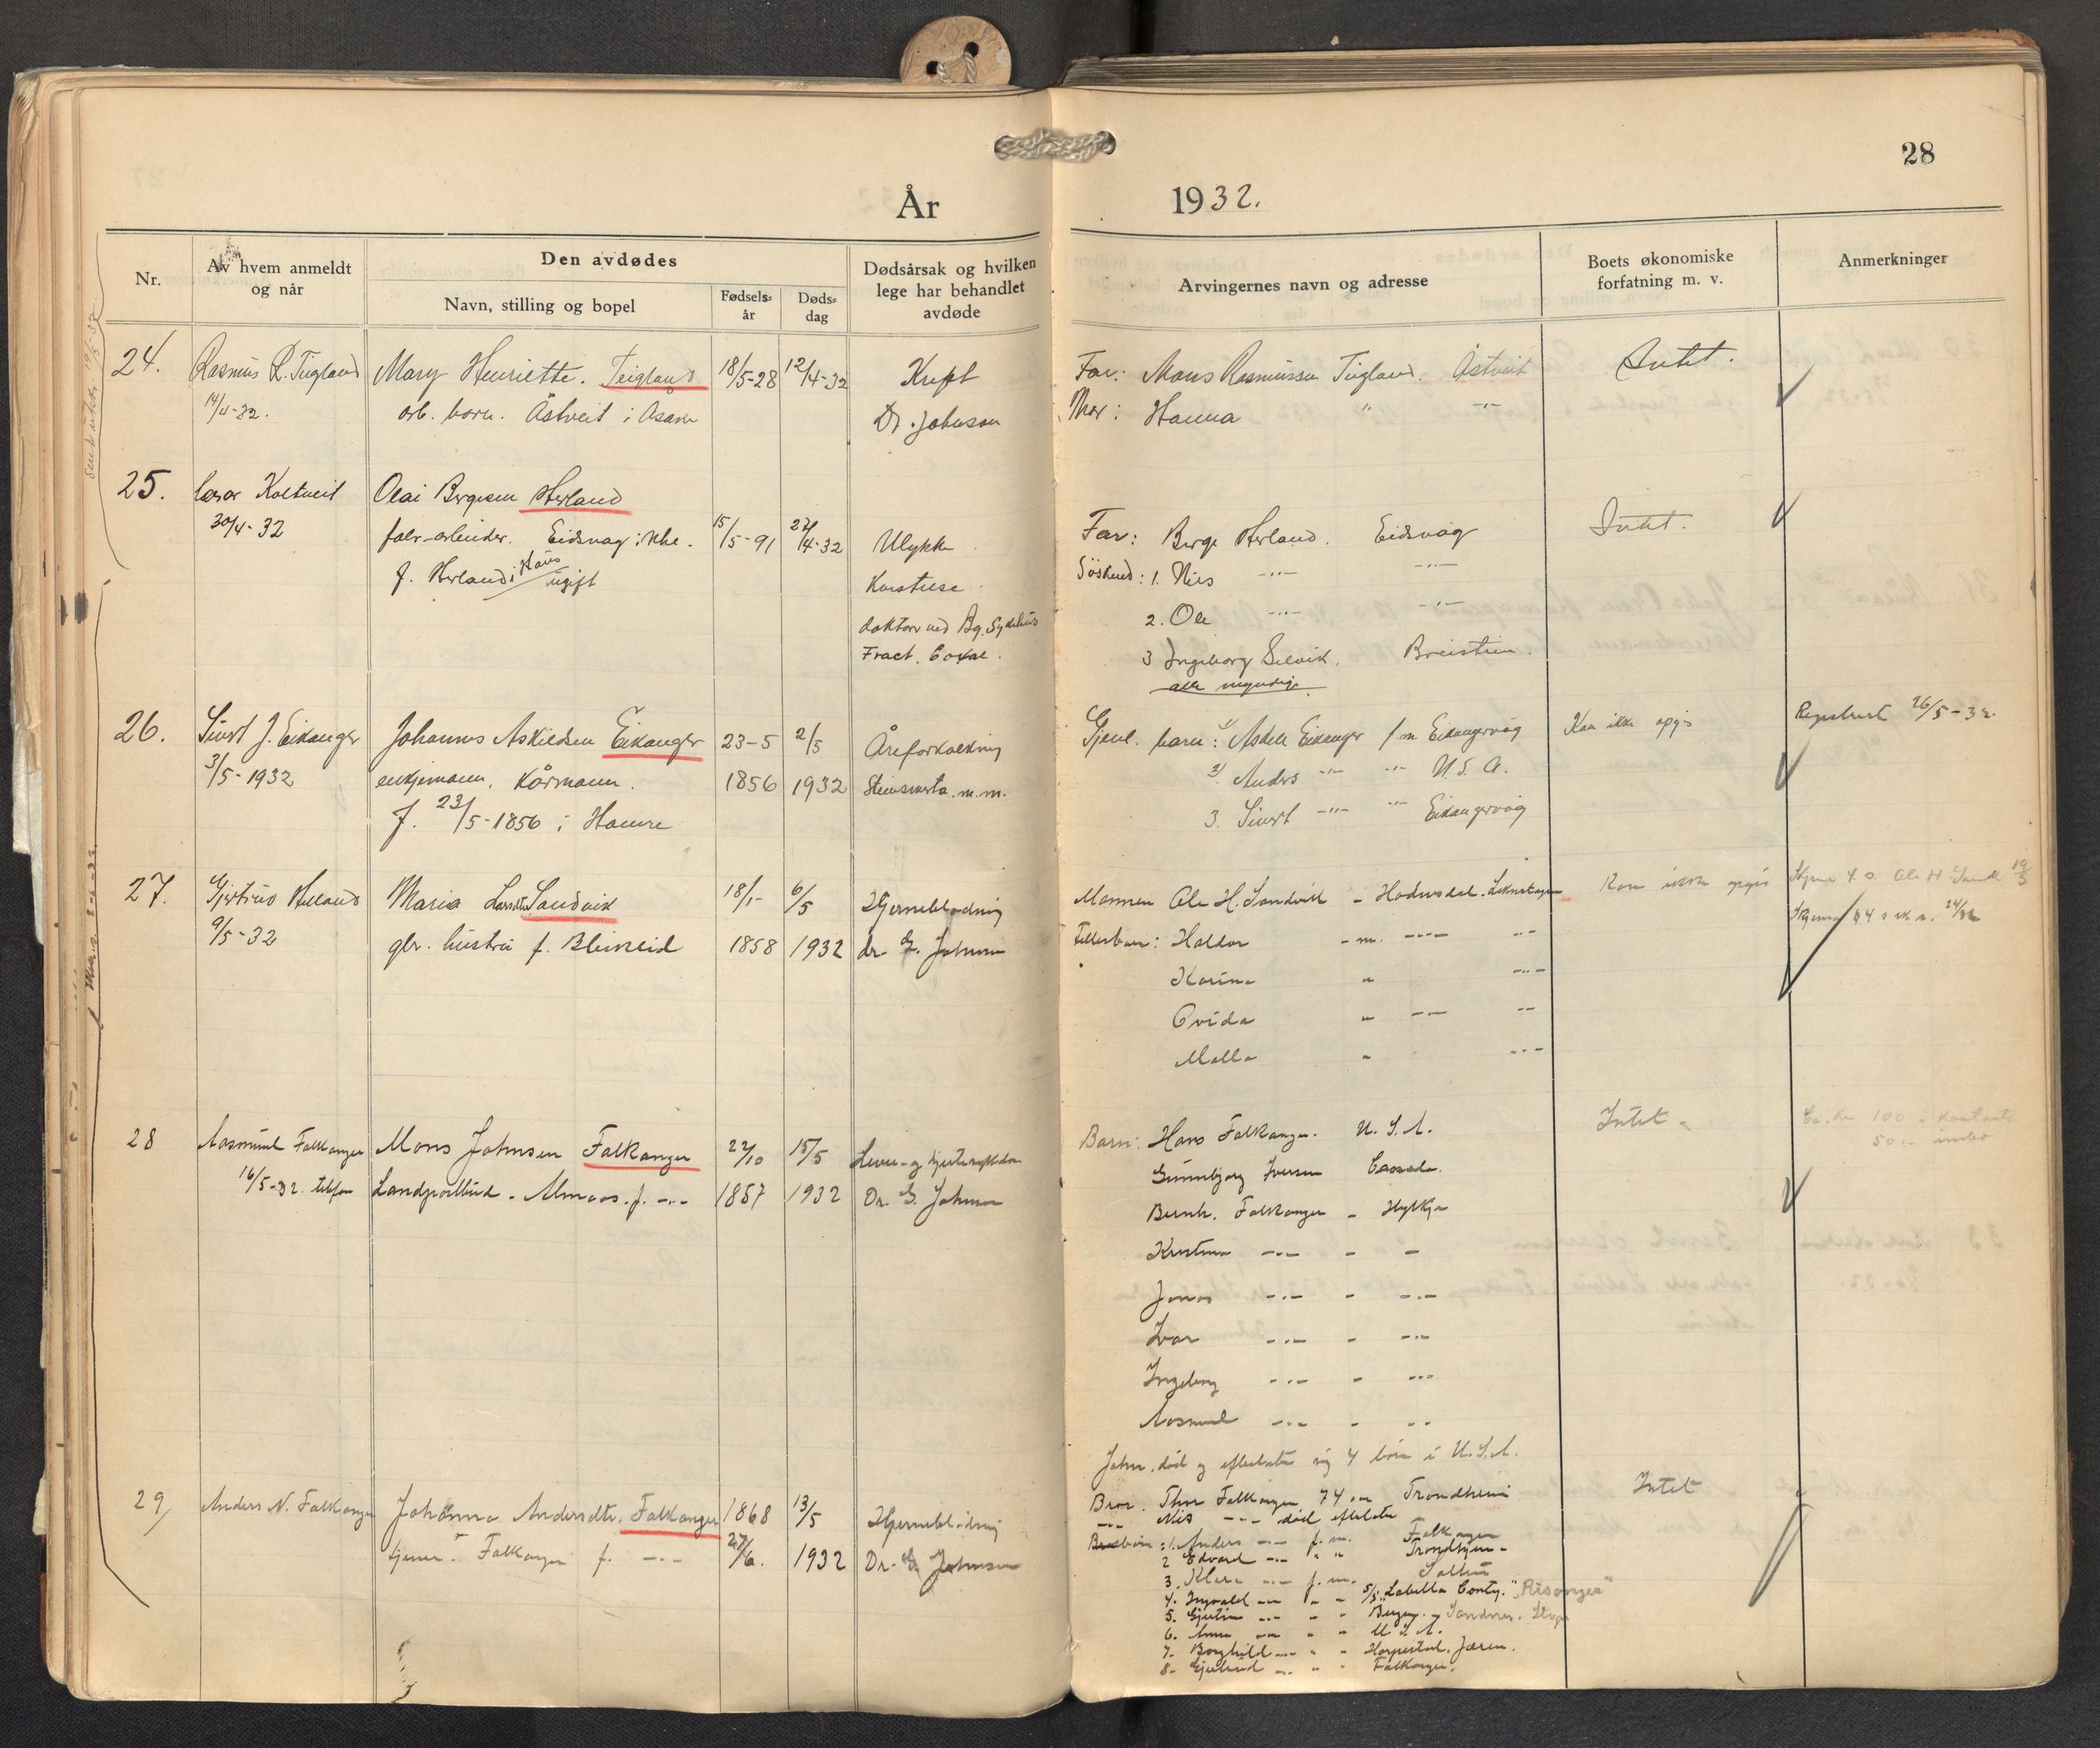 28
År 1932.
Nr.
Av hvem anmeldt og når
Den avdødes
Navn, stilling og bopel
Fødsels= år
Døds= dag
Dødsårsak og hvilken lege har behandlet avdøde
Arvingernes navn og adresse
Boets økonomiske forfatning m. v.
Anmerkninger
24. Rasmus R. Teigland Mary Henriette. Teigland 18/5-28 12/4-32 Kreft Far: Mons Rasmussen Teigland. Åstveit Intet.
14/4-32. arb. barn. Åstveit i Åsane Dr. Johnson Mor: Hanna " -"-
25. Koltveit Olai Bergesen Herland
30/4-32 fabr-arbeider. Eidsvåg 15/5-91 4-32 Ulykke Far: Berge Herland. Eidsvåg Intet.
f. Herland i Haus ugift Søskend: 1. Nils -"- -"-
doktorer ved Bg. Sykehus 2. Ole -"- -"-
Fract. 3 Ingeborg Breistein.
alle myndige
26. Sivert J. Eikanger Johannes Askildsen Eikanger 23-5 2/5 Åreforkalkning Gjenl. barn: 1/ Askild Eikanger f m Eikangervåg Kan ikke opgis Registrert 26/5-32.
3/5-1932 enkjemann. Kårmann. 1856 1932 m.m. 2/ Anders -"- -"- U.S.A.
f. 23/5-1856 i Hamre 3. Sivert -"- " Eikangervåg
27. Gjertrud Helland Maria Larsdtr Sandvik 18/1- 6/5 Hjerneblødning Mannen Ole H. Sandvik - Kan ikke opgis Skjema 4 a Ole H Sandv 19/5
9/5-32 gbr. hustru f. 1858 1932 dr G. Johnson Fellesbarn: Haldor - m. -"- -"-
Karina " -"-
" -"- -"-
" -"-
28 Aasmund Falkanger Mons Johnsen Falkanger 22/10 15/5 Lever- og hjertesykdom Barn: Hans Falkanger. U.S.A. Intet - Ca. kr 100 i kontanter
50 - innbo
16/5-32. telefon Landpostbud. Almaas. f. -"- 1857 1932 Dr. G. Johnson Gunnbjørg Iversen Canada.
Bernh. Falkanger - Hylkje
Kristina -"- - -
Jonas -"- - -"-
Ivar -"- - -"-
Ingeborg -"- - -"-
Aasmund -"- - -"-
John. død og efterlater sig 4 barn i U.S.A.
29/ Anders N. Falkanger Johanna Andersdtr. Falkanger 1868 13/5 Hjerneblødning Bror. Falkanger 74 år Trondheim Intet
-"- Nils -"- død efterlater
tjener - Falkanger f. -"- 27/6. 1932 Dr. G. Johnson Brorbarn: 1. Anders -"- f. m. Falkanger
2 Edvard -"- " " Trondhjem -
3. Klara -"- f. m. Salhus
4. Ingvald -"- " " "Risanger"
5. -"- " " Bergen.
6. Anna -"- " " U.S.A.
7. Borghild -"- " " Jæren.
8- Gjertrud -"- " " Falkanger.